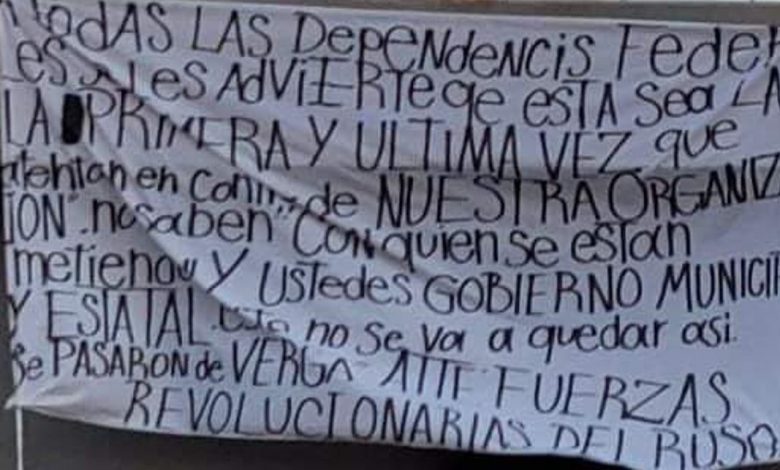 TodAS LAS DEPENdENCiS FEDE
eS SE LES AdViERTE qe ESTA Sea LA
LA PRIMERA Y ULTIMA VEZ que
atentan en Contra de NUESTRA ORGANIZ
ION". no saben" Con quien se estan
metiendo Y USTedes GOBIERNO MUNICI
Y ESTATAL. esto no se va a quedar asi.
Se PASARON de VERGA ATTE FUERZAS
REVOLUCIONARIAS DEL RUSO